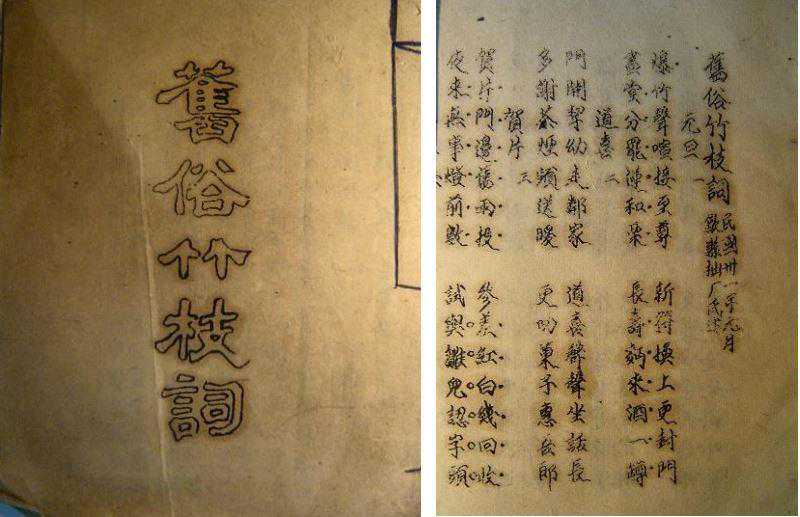 舊俗竹枝詞
舊俗竹枝詞
民國卅一年元月
歙縣
元旦 一
爆竹聲喧接至尊 新符換上更封門
分罷 長壽 來酒一罇
道喜 二
門開挈幼走鄰家 道喜聲聲坐話長
多謝茶煙頻送暖 更叨菓子惠 郎
賀片 三
賀片門邊舊雨投 參差紅白幾回收
夜來無事燈前數 試與雛兒認字頭